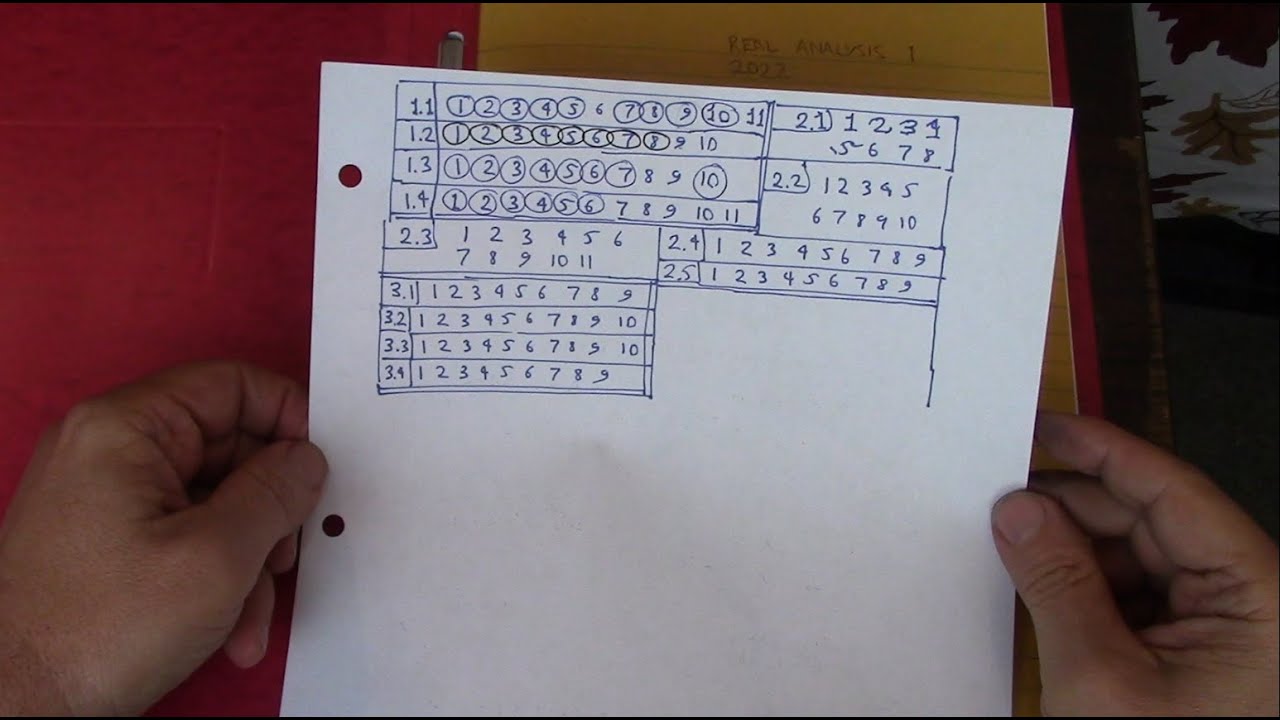 REAL ANALYSIS 1
2022
1.1 1 2 3 4 5 6 7 8 9 10 11
1.2 1 2 3 4 5 6 7 8 9 10
1.3 1 2 3 4 5 6 7 8 9 10
1.4 1 2 3 4 5 6 7 8 9 10 11
2.1 1 2 3 4
5 6 7 8
2.2 1 2 3 4 5
6 7 8 9 10
2.3 1 2 3 4 5 6
7 8 9 10 11
2.4 1 2 3 4 5 6 7 8 9
2.5 1 2 3 4 5 6 7 8 9
3.1 1 2 3 4 5 6 7 8 9
3.2 1 2 3 4 5 6 7 8 9 10
3.3 1 2 3 4 5 6 7 8 9 10
3.4 1 2 3 4 5 6 7 8 9